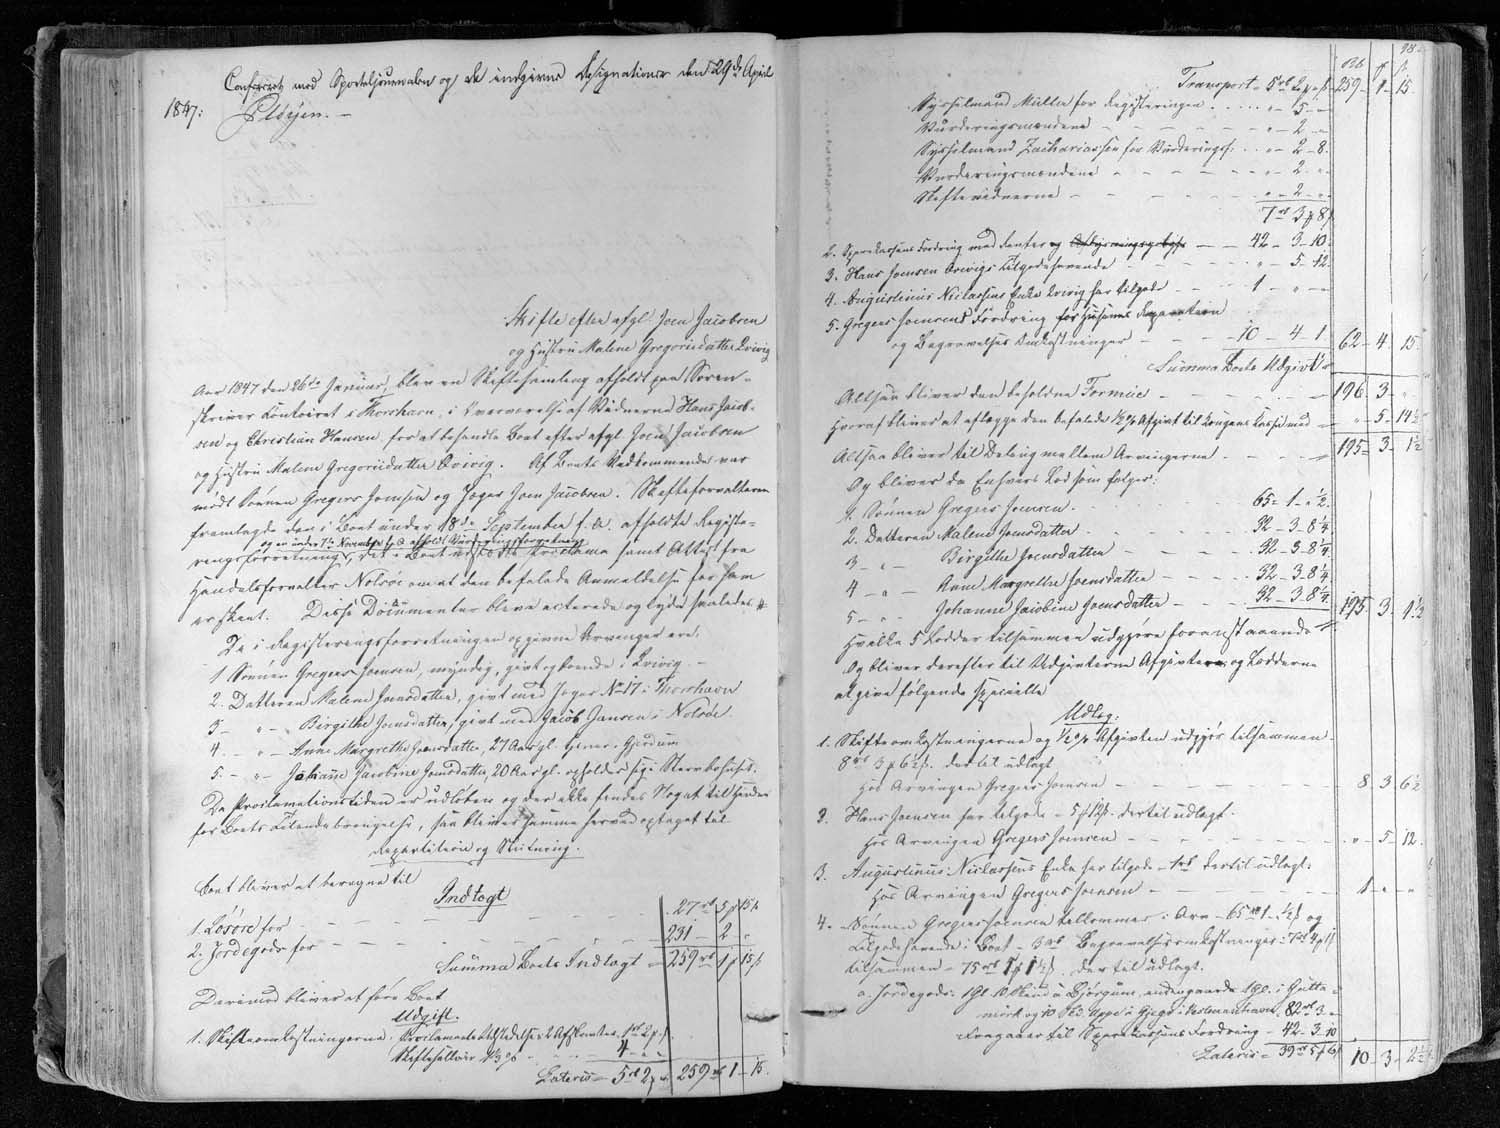 Confereret med Sporteljournalen og de indgivne Designationer den 29de April
1847:
Pløyen.
Skifte efter afgl. Joen Jacobsen
og Hustru Malene Gregoriidatter Qvivig
Aar 1847 den 26de Januar, blev en Skiftesamling afholdt paa Soren-
skriver Contoiret i Thorshavn, i Overværelse af Vidnerne Hans Jacob-
sen og Christian Hansen, for at behandle Boet efter afgl. Joen Jacobsen
og Hustru Malene Gregoriidatter Qvivig. Af Boets Vedkommende var
mødt Sønnen Gregers Joensen og Joger Joen Jacobsen. Skifteforvalteren
fremlagde den i Boet under 18de September f. A. afholdte Registe-
og en under 7de November f. A. afholdt Vurderingsforretning
ringsforretning, det i Boet udstædte Proclama samt Attest fra
Handelsforvalter Nolsøe om at den befalede Anmeldelse for ham
er skeet. Disse Documenter bleve acterede og lyde saaledes #
De i Registeringsforretningen opgivne Arvinger ere:
1. Sønnen Gregers Joensen, myndig, gift og boende i Qvivig. –
2. Datteren Malene Joensdatter, gift med Joger No 17 i Thorshavn
3 – " – Birgithe Joensdatter, gift med Jacob Jansen i Nolsøe.
4. – " – Anne Margrethe Joensdatter, 27 Aar gl. tjener
5. – " – Johanne Jacobine Joensdatter, 20 Aar gl. opholder sig i Stervbohuset.
Da Proclamationstiden er udløben og der ikke findes Noget til Hinder
for Boets Tilendebringelse, saa bliver samme herved optaget til
Repartition og Slutning.
Boet bliver at beregne til
Indtægt
1. Løsøre for – – – 27 rd 5 # 15 s
2. Jordegods for – – – 231 – 2 "
Summa Boets Indtægt = 259 rd 1 # 15 s
Derimod bliver at føre Boet
Udgift.
1. Skifteomkostningerne: Proclamats Udstedelse 2 Afskrifter 1 rd 2 #
Skiftesallair 4 – " –
Lateris – 5 rd 2 # " 259 rd 1 – 15.
98.
Transport – 5 rd 2 # " s 259 – 1 – 15.
Sysselmand Müller for Registeringen . . . . " – 5 – "
Vurderingsmændene – – – – " – 2 – "
Sysselmand Zachariassen for Vurderingsf: . . " – 2 – 8.
Vurderingsmændene – – – " – 2 – "
Skiftevidnerne – – – – " – 2 – "
7 rd 3 # 8 s
2. Sparekassens Fordring med Renter og – – 42 – 3 – 10.
3. Hans Joensen Qvivigs Tilgodehavende – – – " – 5 – 12.
4. Augustinus Niclassens Enke Qvivig har tilgode – – 1 – " – "
5. Gregers Joensens Fordring for Husenes Reparation
og Begravelses Omkostninger – – – 10 – 4 – 1 62 – 4 – 15.
Summa Boets Udgivt =
Altsaa bliver den beholdne Formue – – – 196 3 – "
Hvoraf bliver at aflægge den befalede ½ % Afgivt til Kongens Kasse med " – 5 – 14½
Altsaa bliver til Deling mellem Arvingerne – – – 195 – 3 – 1½
Og bliver da Enhvers Lod som følger:
1. Sønnen Gregers Joensen . . . . 65 – 1 – " ½.
2. Datteren Malene Joensdatter – – – 32 – 3 – 8¼.
3 – " – Birgithe Joensdatter – – – 32 – 3 – 8¼.
4 – " – Anne Margrethe Joensdatter – – – 32 – 3 – 8¼.
5 – " – Johanne Jacobine Joensdatter – – 32 – 3 – 8¼. 195 3 – 1½
Hvilke 5 Lodder tilsammen udgjøre foranstaaende
Og bliver derefter til Udgivterne Afgivten og Lodderne
at give følgende specielle
Udlæg:
1. Skifteomkostningerne og ½ % Afgivten udgjør tilsammen
8 rd 3 # 6½ s. dertil udlagt
hos Arvingen Gregers Joensen – – – 8 3 6½
2. Hans Joensen har tilgode – 5 # 12 s. dertil udlagt.
hos Arvingen Gregers Joensen – – – " – 5 – 12.
3. Augustinus Niclassens Enke har tilgode – 1 rd dertil udlagt:
hos Arvingen Gregers Joensen – – – 1 – " – "
4. Sønnen Gregers Joensen tilkommer i Arv – 65 rd 1 – ½ s og
Tilgodehavende i Boet – 3 rd Begravelsesomkostninger = 7 rd 4 # 1 s
tilsammen – 75 rd 5 # 1½ s. dertil udlagt.
a. Jordegods: 1 Gl. 13 Skind i Bjørgum, indengaards 1 Gl. i
mark og 10 i Vestmanhavn, 82 rd 3 –
fragaaer til Sparekassens Fordring – 42 – 3 – 10
Lateris – 39 rd 5 # 6 s 10 – 3 – 2½